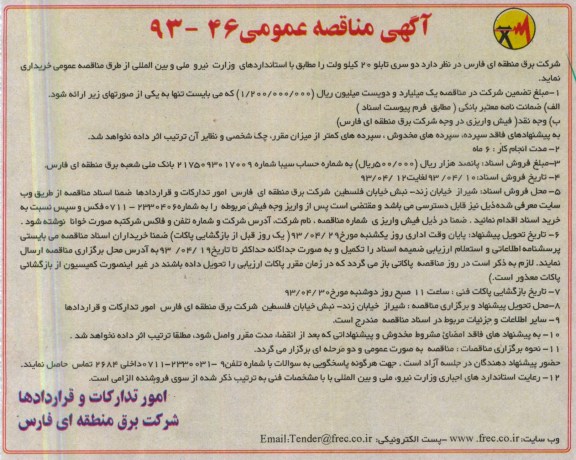 آگهی مناقصه عمومی ۴۶ - ۹۳
شرکت برق منطقه ای فارس در نظر دارد دو سری تابلو ۲۰ کیلو ولت را مطابق با استانداردهای وزارت نیرو ملی و بین المللی از طرق مناقصه عمومی خریداری
نماید.
۱-مبلغ تضمین شرکت در مناقصه یک میلیارد و دویست میلیون ریال (۱/۲۰۰/۰۰۰/۰۰۰) که می بایست تنها به یکی از صورتهای زیر ارائه شود.
الف) ضمانت نامه معتبر بانکی ( مطابق فرم پیوست اسناد )
ب) وجه نقد( فیش واریزی در وجه شرکت برق منطقه ای فارس)
به پیشنهادهای فاقد سپرده، سپرده های مخدوش ، سپرده های کمتر از میزان مقرر، چک شخصی و نظایر آن ترتیب اثر داده نخواهد شد.
۲-مدت انجام کار : ۶ ماه
۳-مبلغ فروش اسناد: پانصد هزار ریال (۵۰۰/۰۰۰ریال) به شماره حساب سیبا شماره ۲۱۷۵۰۹۳۰۱۷۰۰۹ بانک ملی شعبه برق منطقه ای فارس.
۴-تاریخ فروش اسناد: ۹۳/۰۴/۱۰ لغایت ۹۳/۰۴/۱۲
۵- محل فروش اسناد: شیراز خیابان زند– نبش خیابان فلسطین شرکت برق منطقه ای فارس امور تدارکات و قراردادها ضمنا اسناد مناقصه از طریق وب
سایت معرفی شده ذیل نیز قابل دسترسی می باشد و مقتضی است پس از واریز وجه فیش مربوطه را به شماره ۲۳۳۰۰۴۶-۰۷۱۱ فکس و سپس نسبت به
خرید اسناد اقدام نمائید . ضمنا در ذیل فیش واریزی شماره مناقصه ، نام شرکت، آدرس شرکت و شماره تلفن و فاکس شرکت به صورت خوانا نوشته شود .
۶- تاریخ تحویل پیشنهاد: پایان وقت اداری روز یکشنبه مورخ ۹۳/۰۴/۲۹ ( یک روز قبل از بازگشایی پاکات) ضمنا خریداران اسناد مناقصه می بایستی
پرسشنامه اطلاعاتی و استعلام ارزیابی ضمیمه اسناد را تکمیل و به صورت جداگانه حداکثر تا تاریخ ۹۳/۰۴/۱۹ به آدرس محل برگزاری مناقصه ارسال
نمایند. لازم به ذکر است در روز مناقصه پاکاتی باز می گردد که در زمان مقرر پاکات ارزیابی را تحویل داده باشند در غیر اینصورت کمیسیون از بازگشائی
پاکات معذور است.)
۷- تاریخ بازگشایی پاکات فنی : ساعت ۱۱ صبح روز دوشنبه مورخ ۹۳/۰۴/۳۰
۸-محل تحویل پیشنهاد و برگزاری مناقصه : شیراز خیابان زند– نبش خیابان فلسطین شرکت برق منطقه ای فارس امور تدارکات و قراردادها
۹- سایر اطلاعات و جزئیات مربوط در اسناد مناقصه مندرج است.
۱۰- به پیشنهاد های فاقد امضائ مشروط مخدوش و پیشنهاداتی که بعد از انقضا، مدت مقرر واصل شود، مطلقا ترتیب اثر داده نخواهد شد .
۱۱- نحوه برگزاری مناقصات : مناقصه به صورت عمومی و دو مرحله ای برگزار می گردد.
حضور پیشنهاد دهندگان در جلسه آزاد است . جهت هرگونه پاسخگویی به سوالات با شماره تلفن ۹-۲۳۳۰۰۳۱-۰۷۱۱ داخلی ۲۶۸۴ تماس حاصل نمایند.
۱۲- رعایت استاندارد های اجباری وزارت نیرو، ملی و بین المللی با با مشخصات فنی به ترتیب ذکر شده از سوی فروشنده الزامی است.
امور تدارکات و قراردادها
شرکت برق منطقه ای فارس
وب سایت: www. frec.co.ir –پست الکترونیکی: Email:Tender@frec.co.ir